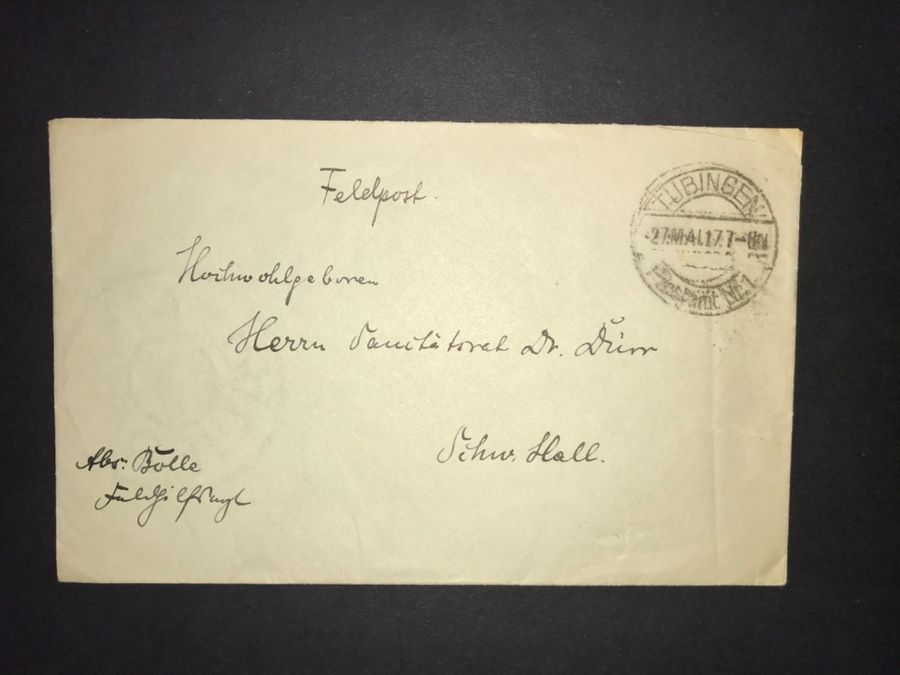 Feldpost.
TÜBINGEN
27.MAI.17.7-8N
Postamt Nr.1
Hochwohlgeboren
Herrn Sanitätsrat Dr. Dürr
Schw. Hall.
Abs: Bolle
Feldhilfsarzt